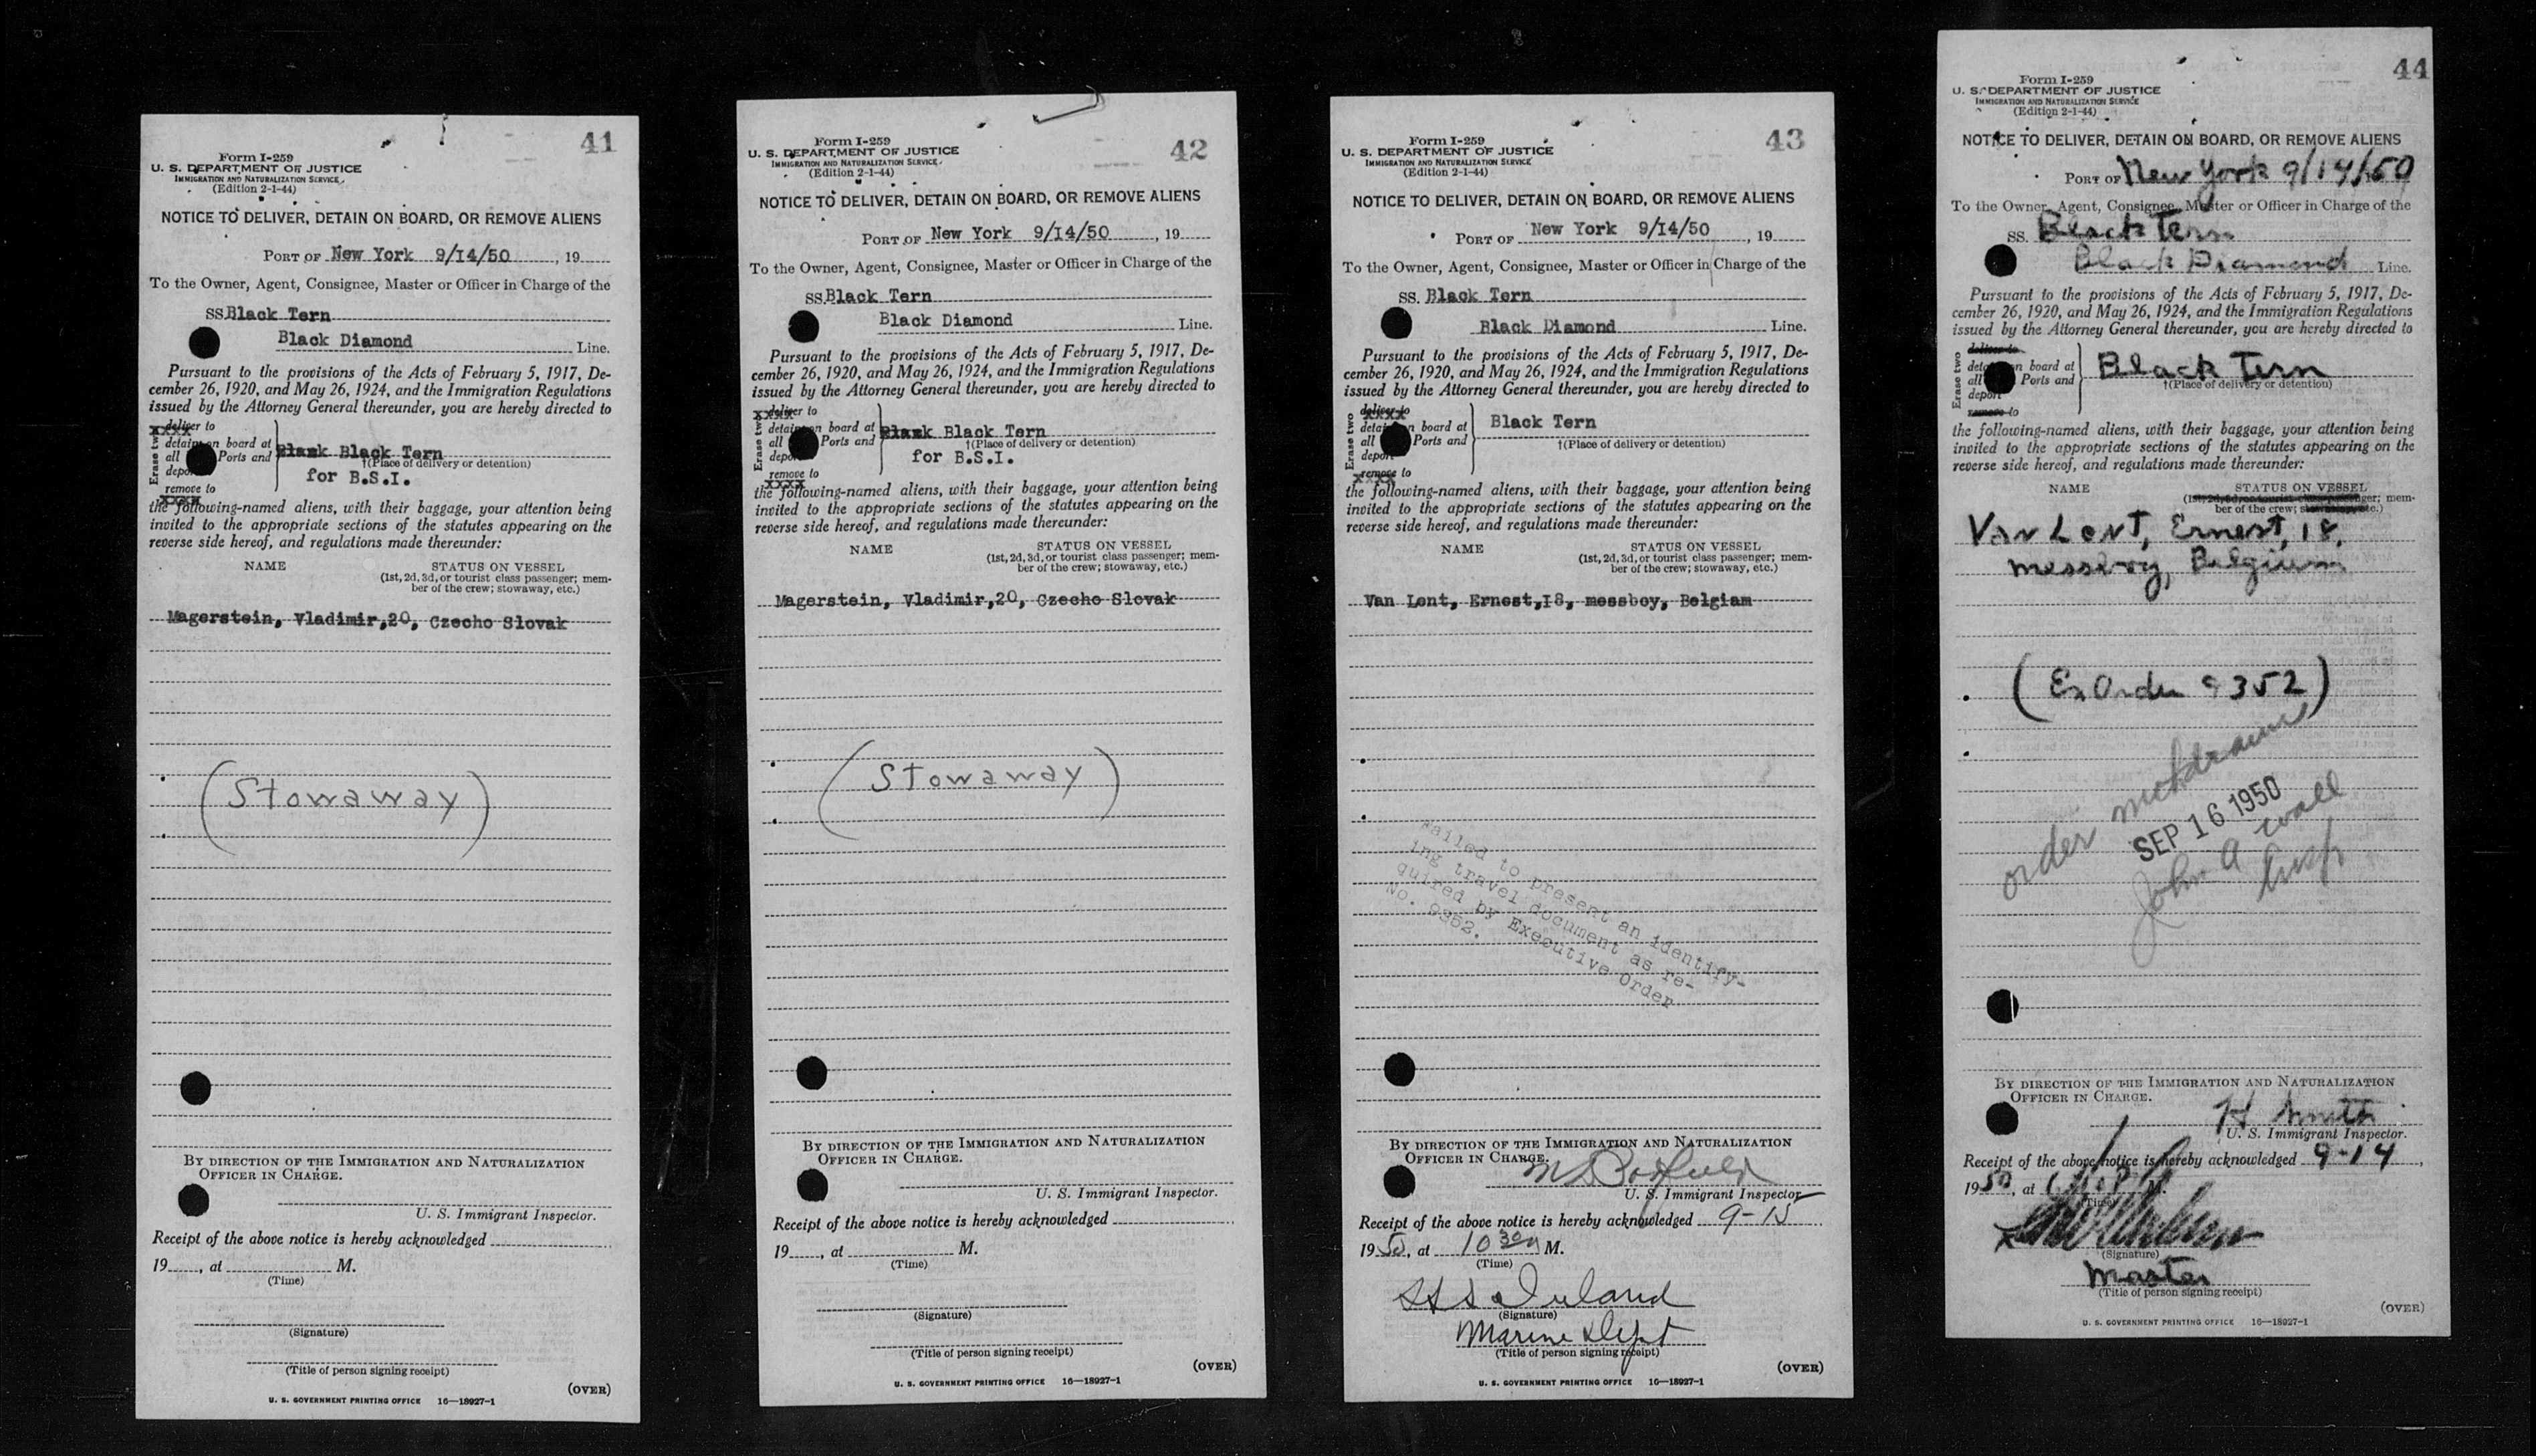 41
Form I-259
U. S. DEPARTMENT OF JUSTICE
IMMIGRATION AND NATURALIZATION SERVICE
(Edition 2-1-44)
NOTICE TO DELIVER, DETAIN ON BOARD, OR REMOVE ALIENS
PORT OF New York 9/14/50, 19
To the Owner, Agent, Consignee, Master or Officer in Charge of the
SS. Black Tern
Black Diamond Line.
Pursuant to the provisions of the Acts of February 5, 1917, De-
cember 26, 1920, and May 26, 1924, and the Immigration Regulations
issued by the Attorney General thereunder, you are hereby directed to
Erase two
deliver to
detain on board at
all Ports and
Black Tern
†(Place of delivery or detention)
for B.S.I.
remove to
xxxx
the following-named aliens, with their baggage, your attention being
invited to the appropriate sections of the statutes appearing on the
reverse side hereof, and regulations made thereunder:
NAME STATUS ON VESSEL
(1st, 2d, 3d, or tourist class passenger; mem-
ber of the crew; stowaway, etc.)
Magerstein, Vladimir,20, Czecho Slovak
(Stowaway)
BY DIRECTION OF THE IMMIGRATION AND NATURALIZATION
OFFICER IN CHARGE.
U. S. Immigrant Inspector.
Receipt of the above notice is hereby acknowledged
19, at M.
(Time)
(Signature)
(Title of person signing receipt)
(OVER)
U. S. GOVERNMENT PRINTING OFFICE 16—18927-1
42
Form I-259
U. S. DEPARTMENT OF JUSTICE
IMMIGRATION AND NATURALIZATION SERVICE
(Edition 2-1-44)
NOTICE TO DELIVER, DETAIN ON BOARD, OR REMOVE ALIENS
PORT OF New York 9/14/50, 19
To the Owner, Agent, Consignee, Master or Officer in Charge of the
SS. Black Tern
Black Diamond Line.
Pursuant to the provisions of the Acts of February 5, 1917, De-
cember 26, 1920, and May 26, 1924, and the Immigration Regulations
issued by the Attorney General thereunder, you are hereby directed to
Erase two
deliver to
detain on board at
all Ports and
Black Tern
†(Place of delivery or detention)
for B.S.I.
remove to
xxxx
the following-named aliens, with their baggage, your attention being
invited to the appropriate sections of the statutes appearing on the
reverse side hereof, and regulations made thereunder:
NAME STATUS ON VESSEL
(1st, 2d, 3d, or tourist class passenger; mem-
ber of the crew; stowaway, etc.)
Magerstein, Vladimir,20, Czecho Slovak
(Stowaway)
BY DIRECTION OF THE IMMIGRATION AND NATURALIZATION
OFFICER IN CHARGE.
U. S. Immigrant Inspector.
Receipt of the above notice is hereby acknowledged
19, at M.
(Time)
(Signature)
(Title of person signing receipt)
(OVER)
U. S. GOVERNMENT PRINTING OFFICE 16—18927-1
43
Form I-259
U. S. DEPARTMENT OF JUSTICE
IMMIGRATION AND NATURALIZATION SERVICE
(Edition 2-1-44)
NOTICE TO DELIVER, DETAIN ON BOARD, OR REMOVE ALIENS
PORT OF New York 9/14/50, 19
To the Owner, Agent, Consignee, Master or Officer in Charge of the
SS. Black Tern
Black Diamond Line.
Pursuant to the provisions of the Acts of February 5, 1917, De-
cember 26, 1920, and May 26, 1924, and the Immigration Regulations
issued by the Attorney General thereunder, you are hereby directed to
Erase two
deliver to
board at
all Ports and
Black Tern
†(Place of delivery or detention)
remove to
xxxx
the following-named aliens, with their baggage, your attention being
invited to the appropriate sections of the statutes appearing on the
reverse side hereof, and regulations made thereunder:
NAME STATUS ON VESSEL
(1st, 2d, 3d, or tourist class passenger; mem-
ber of the crew; stowaway, etc.)
Van Lent, Ernest,18, messboy, Belgiam
Failed to present an identify-
ing travel document as re-
quired by Executive Order
No. 9352.
BY DIRECTION OF THE IMMIGRATION AND NATURALIZATION
OFFICER IN CHARGE.
U. S. Immigrant Inspector
Receipt of the above notice is hereby acknowledged 9-15
1950, at 10 30 M.
(Time)
(Signature)
Marine Dept
(Title of person signing receipt)
(OVER)
U. S. GOVERNMENT PRINTING OFFICE 16—18927-1
44
Form I-259
U. S. DEPARTMENT OF JUSTICE
IMMIGRATION AND NATURALIZATION SERVICE
(Edition 2-1-44)
NOTICE TO DELIVER, DETAIN ON BOARD, OR REMOVE ALIENS
PORT OF New York 9/14/50
To the Owner, Agent, Consignee, Master or Officer in Charge of the
SS. Black Tern
Black Diamond Line.
Pursuant to the provisions of the Acts of February 5, 1917, De-
cember 26, 1920, and May 26, 1924, and the Immigration Regulations
issued by the Attorney General thereunder, you are hereby directed to
Erase two
deliver to
board at
all Ports and
deport
Black Tern
†(Place of delivery or detention)
remove to
the following-named aliens, with their baggage, your attention being
invited to the appropriate sections of the statutes appearing on the
reverse side hereof, and regulations made thereunder:
NAME STATUS ON VESSEL
mem-
ber of the crew;
Van Lent, Ernest, 18,
messboy, Belgium
(Ex Order 9352)
order withdrawn
SEP 16 1950
John A Wall
Insp
BY DIRECTION OF THE IMMIGRATION AND NATURALIZATION
OFFICER IN CHARGE.
H Smith
U. S. Immigrant Inspector.
Receipt of the above notice is hereby acknowledged 9-14,
1950, at M.
(Time)
(Signature)
Master
(Title of person signing receipt)
(OVER)
U. S. GOVERNMENT PRINTING OFFICE 16—18927-1